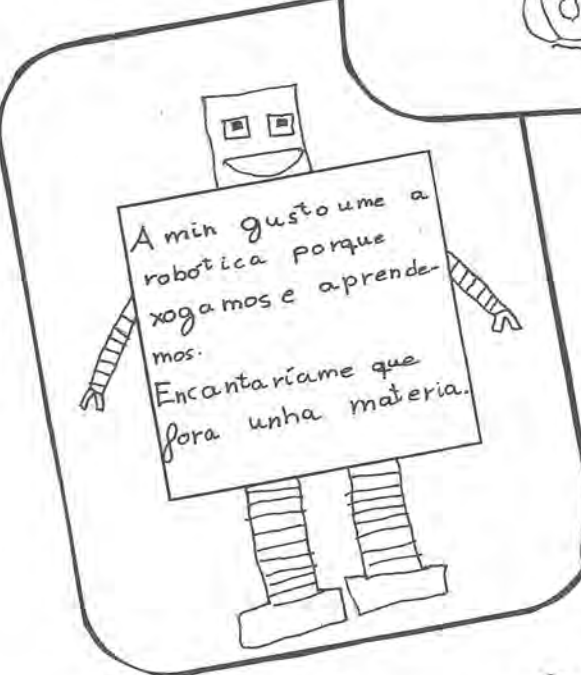 A min gustoume a
robótica porque
xogamos e aprende-
mos.
Encantaríame que
fora unha materia.